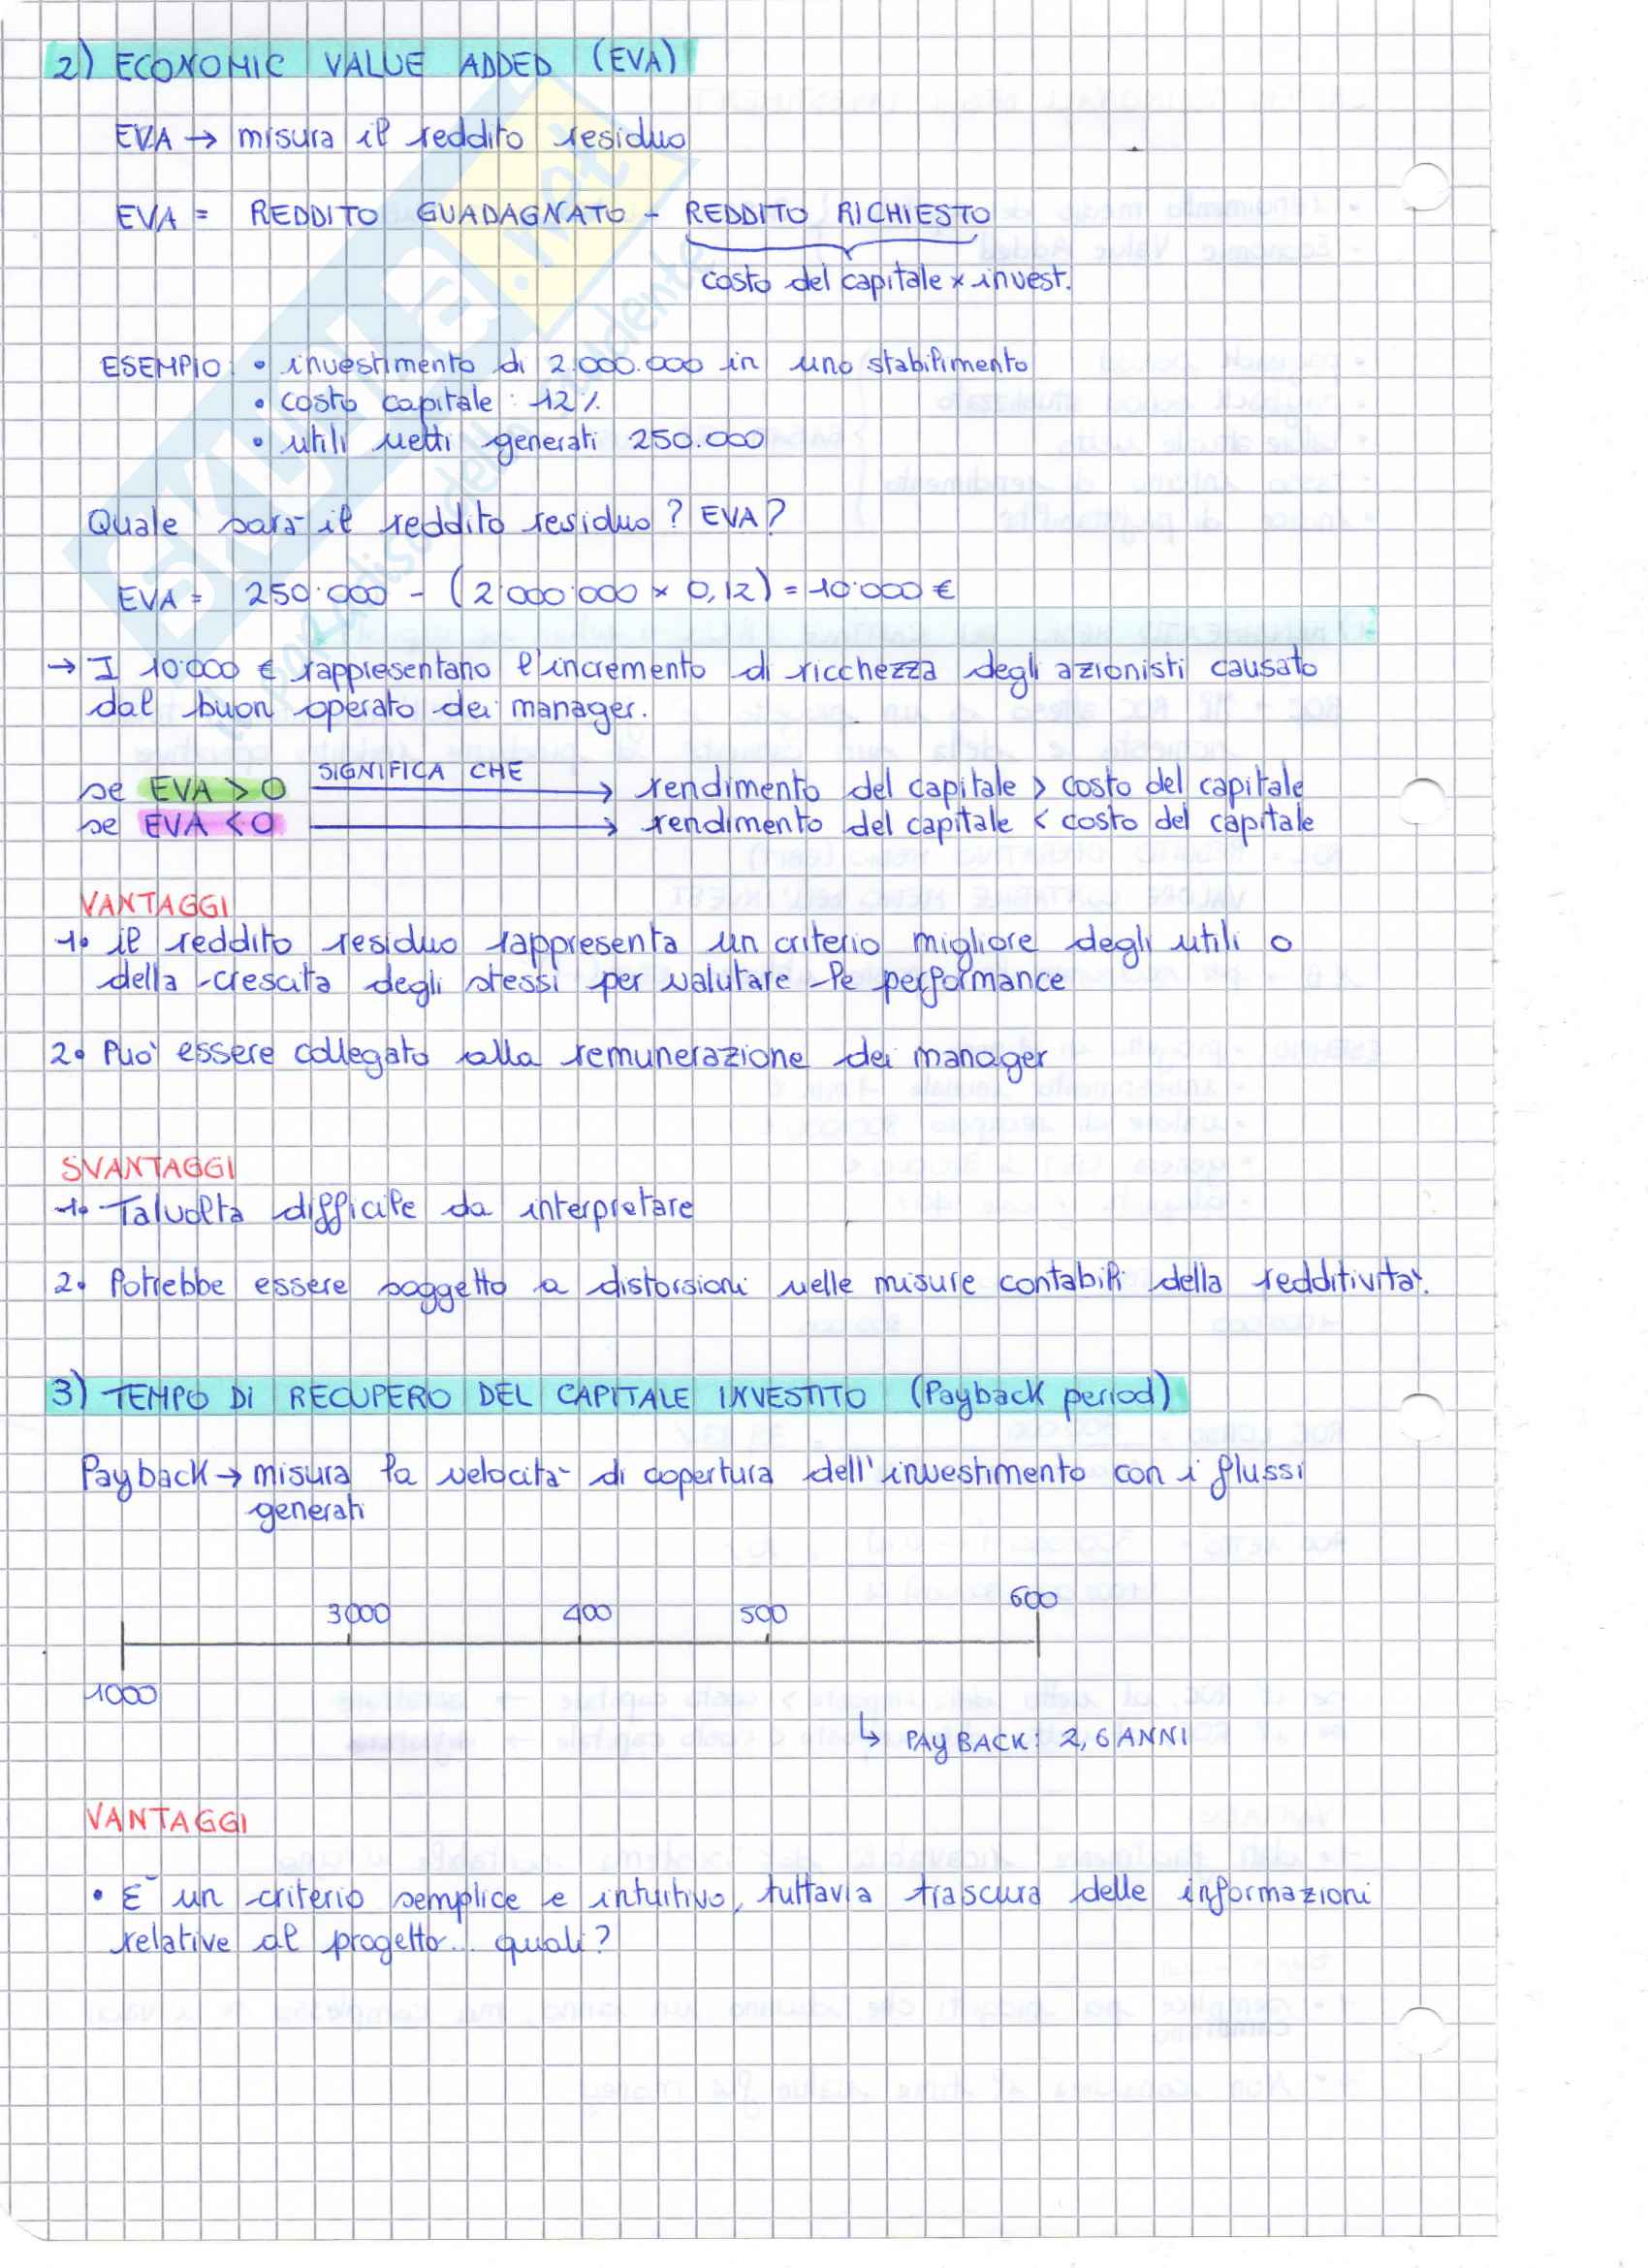 2) ECONOMIC VALUE ADDED (EVA)
EVA → misura il reddito residuo
EVA = REDDITO GUADAGNATO - REDDITO RICHIESTO
costo del capitale x invest.
ESEMPIO: • investimento di 2.000.000 in uno stabilimento
• costo capitale : 12%
• utili netti generati 250.000
Quale sarà il reddito residuo? EVA?
EVA = 250.000 - (2.000.000 x 0,12) = 10.000 €
→ I 10.000 € rappresentano l'incremento di ricchezza degli azionisti causato
dal buon operato dei manager.
se EVA > 0 SIGNIFICA CHE → rendimento del capitale > costo del capitale
se EVA < 0 → rendimento del capitale < costo del capitale
VANTAGGI
1• il reddito residuo rappresenta un criterio migliore degli utili o
della crescita degli stessi per valutare le performance
2• Può essere collegato alla remunerazione dei manager
SVANTAGGI
1• Talvolta difficile da interpretare
2• Potrebbe essere soggetto a distorsioni nelle misure contabili della redditività.
3) TEMPO DI RECUPERO DEL CAPITALE INVESTITO (Payback period)
Payback → misura la velocità di copertura dell'investimento con i flussi
generati
3000 400 500 600
1000
↳ PAYBACK: 2,6 ANNI
VANTAGGI
• È un criterio semplice e intuitivo, tuttavia trascura delle informazioni
relative al progetto... quali?